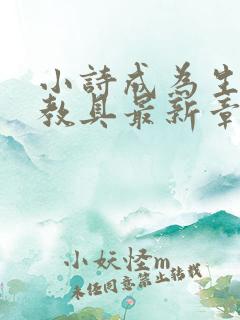 小詩成為生
教具最新章
小妖怪m
未任同意禁止转载